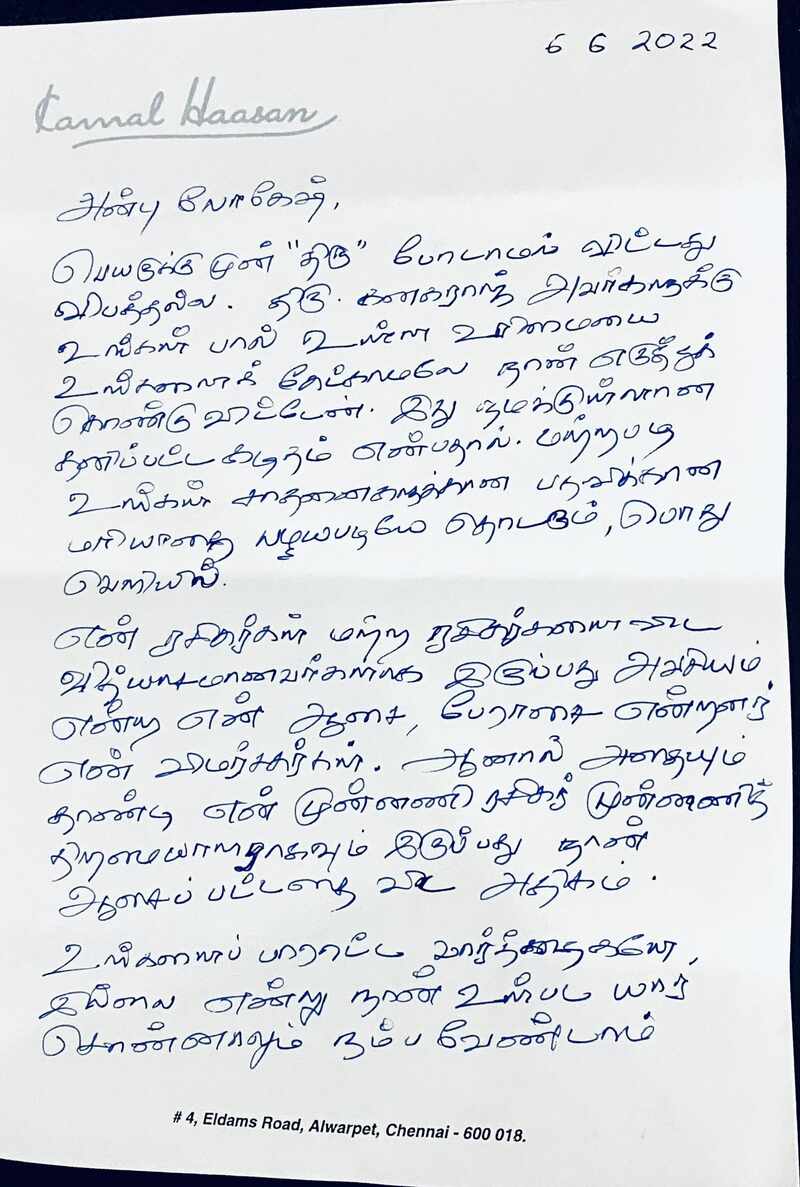 6 6 2022
Kamal Haasan
அன்பு லோகேஷ்,
பெயருக்கு முன் "திரு" போடாமல் விட்டது
விபத்தல்ல. திரு. கனகராஜ் அவர்களுக்கு
உங்கள் பால் உள்ள உரிமையை
உங்களைக் கேட்காமலே நான் எடுத்துக்
கொண்டு விட்டேன். இது நமக்குள்ளான
தனிப்பட்ட கடிதம் என்பதால். மற்றபடி
உங்கள் சாதனைகளுக்கான பதவிக்கான
மரியாதை பழையபடியே தொடரும், பொது
வெளியில்.
என் ரசிகர்கள் மற்ற ரசிகர்களை விட
வித்யாசமானவர்களாக இருப்பது அவசியம்
என்ற என் ஆசை, பேராசை என்றனர்
என் விமர்சகர்கள். ஆனால் அதையும்
தாண்டி என் முன்னணி ரசிகர் முன்னணித்
திறமையாளராகவும் இருப்பது நான்
ஆசைப் பட்டதை விட அதிகம்.
உங்களைப் பாராட்ட வார்த்தைகளே,
இல்லை என்று நான் உள்பட யார்
சொன்னாலும் நம்ப வேண்டாம்
# 4, Eldams Road, Alwarpet, Chennai - 600 018.